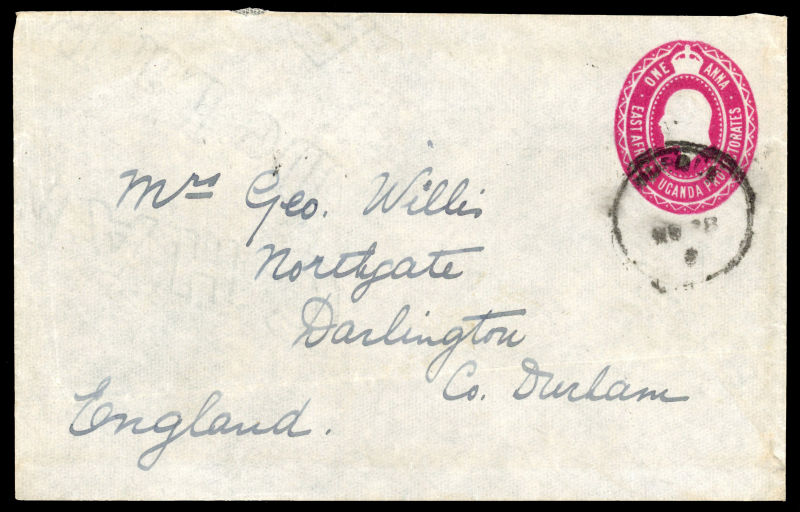 ONE ANNA
EAST AFRICA UGANDA PROTECTORATES
Mrs Geo. Willis
Northgate
Darlington
Co. Durham
England.